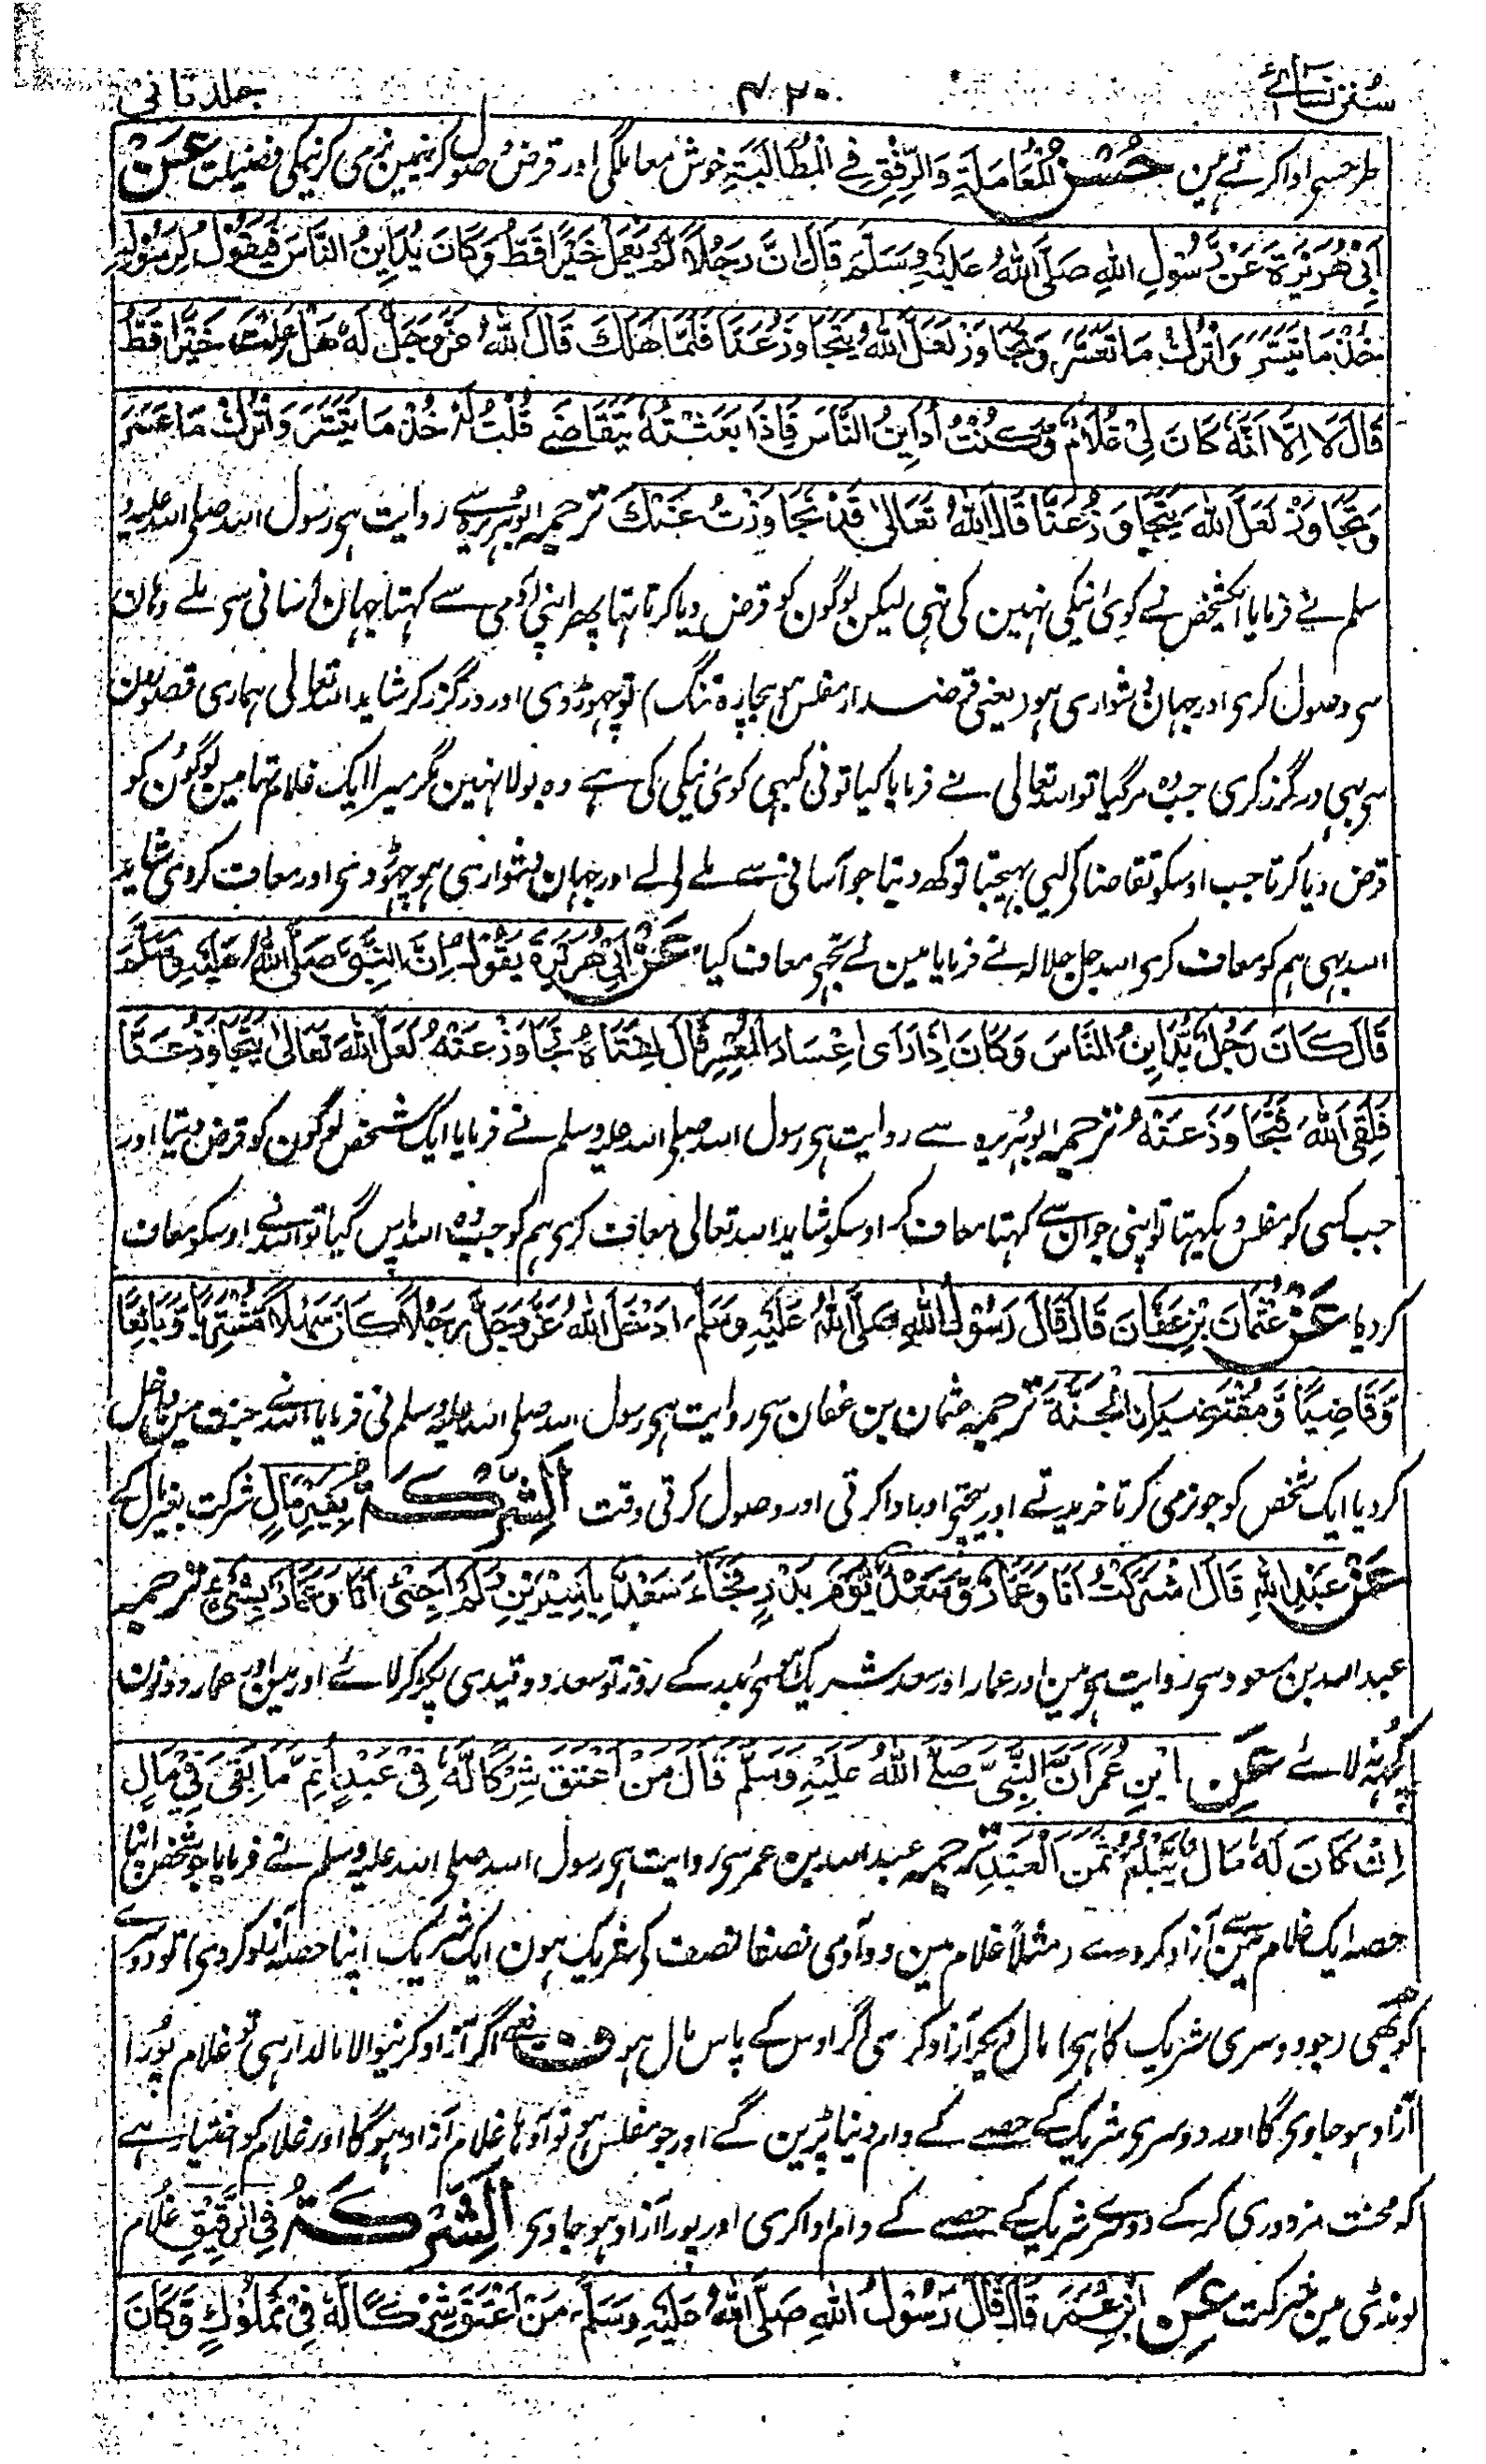 سنن نسائے ۴۲۰ جلد ثانی
طرحسے ادا کرتے ہین حُسْنُ الْمُعَامَلَةِ وَالرِّفْقِ فِے الْمُطَالَبَةِ خوش معاملگی اور قرض وصول کرنیمین نرمی کرنیکی فضیلت عَنْ
اَبِیْ هُرَیْرَةَ عَنْ رَسُوْلِ اللهِ صَلَّی اللهُ عَلَیْهِ وَسَلَّمَ قَالَ اِنَّ رَجُلًا لَمْ یَعْمَلْ خَیْرًا قَطُّ وَکَانَ یُدَایِنُ النَّاسَ فَیَقُوْلُ لِرَسُوْلِهٖ
خُذْ مَا تَیَسَّرَ وَاتْرُكْ مَا تَعَسَّرَ وَتَجَاوَزْ لَعَلَّ اللهَ یَتَجَاوَزُ عَنَّا فَلَمَّا هَلَكَ قَالَ اللهُ عَزَّوَجَلَّ لَهٗ هَلْ عَمِلْتَ خَیْرًا قَطُّ
قَالَ لَا اِلَّا اَنَّهٗ کَانَ لِیْ غُلَامٌ وَّکُنْتُ اُدَایِنُ النَّاسَ فَاِذَا بَعَثْتُهٗ یَتَقَاضَے قُلْتُ لَهٗ خُذْ مَا تَیَسَّرَ وَاتْرُكْ مَا عَسَرَ
وَتَجَاوَزْ لَعَلَّ اللهَ یَتَجَاوَزُ عَنَّا قَالَ اللهُ تَعَالٰی قَدْ تَجَاوَزْتُ عَنْكَ ترجمہ ابوہریرہ سے روایت ہی رسول اللہ صلی اللہ علیہ و
سلم نے فرمایا ایکشخص نے کوئی نیکی نہین کی تہی لیکن لوگون کو قرض دیا کرتا تہا پھر اپنی آدمی سے کہتا جہان آسانی سی ملے وہان
سی وصول کری اور جہان دشواری ہو (یعنی قرضدار مفلس ہو بیچارہ تنگ) تو چہوڑ دی اور درگزر کر شاید اللہ تعالی ہماری قصورون
سی بہی درگزر کری جب وہ مر گیا تو اللہ تعالی نے فرمایا کیا تو نی کبہی کوئی نیکی کی ہے وہ بولا نہین مگر میرا ایک غلام تہا مین لوگون کو
قرض دیا کرتا جب اوسکو تقاضا کی لیی بہیجتا تو کہہ دیتا جو آسانی سے ملے لے لے اور جہان دشوار ہی ہو چہوڑ دی اور معاف کر دی شاید
اللہ بہی ہم کو معاف کری اللہ جل جلالہ نے فرمایا مین نے تجہی معاف کیا عَنْ اَبِیْ هُرَیْرَةَ یَقُوْلُ اِنَّ النَّبِیَّ صَلَّی اللهُ عَلَیْهِ وَسَلَّمَ
قَالَ کَانَ رَجُلٌ یُّدَایِنُ النَّاسَ وَکَانَ اِذَا رَاٰی اِعْسَارَ الْمُعْسِرِ قَالَ لِفَتَاهُ تَجَاوَزْ عَنْهُ لَعَلَّ اللهَ تَعَالٰی یَتَجَاوَزُ عَنَّا
فَلَقِیَ اللهَ فَتَجَاوَزَ عَنْهُ ترجمہ ابوہریرہ سے روایت ہی رسول اللہ صلی اللہ علیہ وسلم نے فرمایا ایک شخص لوگون کو قرض دیتا اور
جب کسی کو مفلس دیکہتا تو اپنی جوان سے کہتا معاف کر اوسکو شاید اللہ تعالی معاف کری ہم کو جب وہ اللہ پاس گیا تو اللہ نے اوسکو معاف
کر دیا عَنْ عُثْمَانَ بْنِ عَفَّانَ قَالَ قَالَ رَسُوْلُ اللهِ صَلَّی اللهُ عَلَیْهِ وَسَلَّمَ اَدْخَلَ اللهُ عَزَّوَجَلَّ رَجُلًا کَانَ سَهْلًا مُشْتَرِیًا وَّبَائِعًا
وَّقَاضِیًا وَّمُقْتَضِیًا نِ الْجَنَّةَ ترجمہ عثمان بن عفان سی روایت ہی رسول اللہ صلی اللہ علیہ وسلم نی فرمایا اللہ نے جنت مین داخل
کر دیا ایک شخص کو جو نرمی کرتا خریدتے اور بیچتی اور ادا کرتی اور وصول کرتی وقت اَلشِّرْکَةُ بِغَیْرِ مَالٍ شرکت بغیر مال کے
عَنْ عَبْدِ اللهِ قَالَ اشْتَرَکْتُ اَنَا وَعَمَّارٌ وَّسَعْدٌ یَوْمَ بَدْرٍ فَجَاءَ سَعْدٌ بِاَسِیْرَیْنِ وَلَمْ اَجِئْ اَنَا وَعَمَّارٌ بِشَیْءٍ ترجمہ
عبد اللہ بن مسعود سی روایت ہی مین اور عمار اور سعد شریک ہوئی بدر کے روز تو سعد دو قیدی پکڑ کر لائے اور مین اور عمار دونون
کچہہ نہ لائے عَنِ ابْنِ عُمَرَ اَنَّ النَّبِیَّ صَلَّے اللهُ عَلَیْهِ وَسَلَّمَ قَالَ مَنْ اَعْتَقَ شِرْکًا لَّهٗ فِیْ عَبْدٍ اُتِمَّ مَا بَقِیَ فِیْ مَالِهٖ
اِنْ کَانَ لَهٗ مَالٌ یَّبْلُغُ ثَمَنَ الْعَبْدِ ترجمہ عبد اللہ بن عمر سی روایت ہی رسول اللہ صلی اللہ علیہ وسلم نے فرمایا جو شخص اپنا
حصہ ایک غلام مین سے آزاد کر دے (مثلاً غلام مین دو آدمی نصفا نصف کی شریک ہون ایک شریک اپنا حصہ آزاد کر دی) تو دوسرے
کو بھی (جو دوسری شریک کا ہی) مال دیکر آزاد کری اگر اوس کے پاس مال ہو ف یعنے اگر آزاد کرنیوالا مالدار ہی تو غلام پورا
آزاد ہو جاوی گا اور دوسری شریک کے حصے کے دام دینا پڑین گے اور جو مفلس ہو تو آدہا غلام آزاد ہوگا اور غلام کو اختیار ہے
کہ محنت مزدوری کر کے دوسرے شریک کے حصے کے دام ادا کری اور پورا آزاد ہو جاوی اَلشِّرْکَةُ فِی الرَّقِیْقِ غلام
لونڈی مین شرکت عَنِ ابْنِ عُمَرَ قَالَ قَالَ رَسُوْلُ اللهِ صَلَّی اللهُ عَلَیْهِ وَسَلَّمَ مَنْ اَعْتَقَ شِرْکًا لَّهٗ فِیْ مَمْلُوْكٍ وَّکَانَ